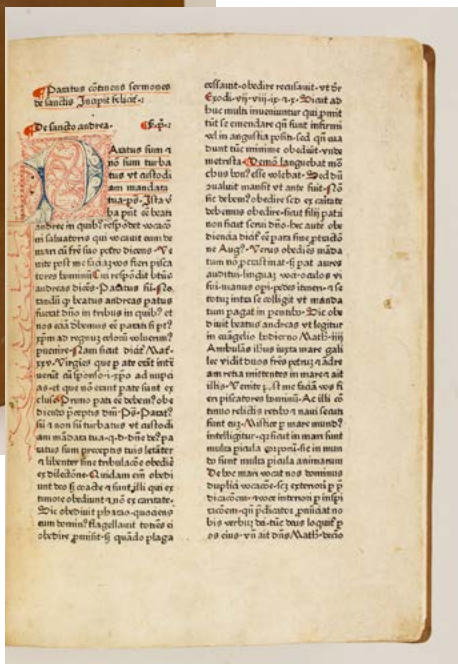 Paratus cōtinens sermones
de sanctis Incipit felicit̄
De sancto andrea.
Aratus sum ⁊
nō sum turba
tus vt custodi
am mandata
tua ps Ista
ba pñt eē beati
andree in quib⁹ respōdet vocacō
ni saluatoris qui vocauit eum de
mari cū fre suo petro dicens Ve
nite post me faciā vos fieri pisca
tores hominū Cui respōdit btūs
andreas dicēs Paratus sū No
tandū ꝙ beatus andreas paratus
fuerat dño in tribus in quib⁹ et
nos eciā dbemus eē parati si
ad regnum celorū voluerim⁹
puenire Nam sicut dicit Mat
xxv Virgies que pate erāt intr
uerūt cū sponso xp̄o ad nupci
as et que nō erant pate sunt ex
cluse Primo pati eē debem⁹ obe
diendo pceptis dni Ps Parat⁹
sū ⁊ non sū turbatus vt custodi
am mādata tua
tatus sum preceptis tuis letāter
⁊ libenter sine tribulacōe obedire
ex dilectōne Quidam em̄ obedi
unt deo coacte illi qui ex
timore obediunt ⁊ nō ex caritate
Sic obediuit pharao quociens
eum domin⁹ flagellauit tociens ei
obedire pmisit quādo plaga
cessauit obedire recusauit vt
Exodi vij viij ix ⁊ x Sicut ad
huc multi inueniuntur qui pmit
tūt se emendare qn̄ sunt infirmi
vel in angustia positi sed qn̄ eua
dunt tūc minime obediūt vnde
metrista Demō languebat mō
chus bon⁹ esse volebat Sed dū
9ualuit mansit vt ante fuit Nō
sic debem⁹ obedire sed ex caritate
debemus obedire sicut filij patri
non sicut serui dño hec aute obe
diencia
ne Aug⁹ Verus obediēs māda
tum nō pcrastinat si pat aures
auditui linguā voci oculos vi
sui manus opi pedes itineri ⁊ se
totū intra se colligit vt manda
tum pagat in petentis Sic obe
diuit beatus andreas vt legitur
in euāgelio hodierno Math iiij
Ambulās ihus iuxta mare gali
lee vidit duos frēs petrū ⁊ ādreā
am retia mittentes in mare ⁊ ait
illis Venite post me faciā vos fi
eri piscatores hominū Ac illi cō
tinuo relictis retibus ⁊ naui secuti
sunt eū Mistice p mare mund⁹
intelligitur q̄ sicut in mari sunt
multa picula corporū sic in mun
do sunt multa picula animarum
De hoc mari vocat nos dominus
duplici vocacōe scz exteriori p p
dicacōem ⁊ voce interiori p inspi
racōem qn̄ pdicator pnūciat no
bis verbū dei tūc deus loquit p
os eius vn̄ ait dñs Math decio